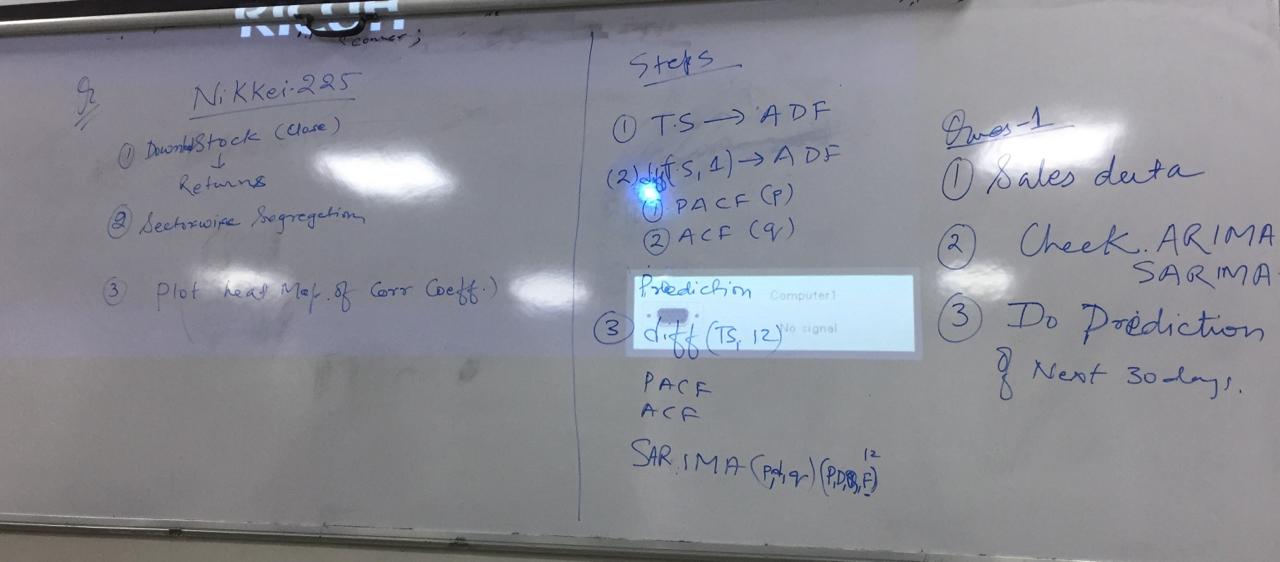 RICOH
Nikkei-225
① Download Stock (Close)
↓
Returns
② Sectorwise Segregation
③ Plot heat Map of Corr Coeff.)
Steps
① T.S → ADF
(2) diff(T.S, 1) → ADF
① PACF (p)
② ACF (q)
Prediction
Computer1
No signal
③ diff (TS, 12)
PACF
ACF
SARIMA (p,d,q) (P,D,Q,F)
12
Ques-1
① Sales data
② Check ARIMA
SARIMA
③ Do Prediction
of Next 30 days.